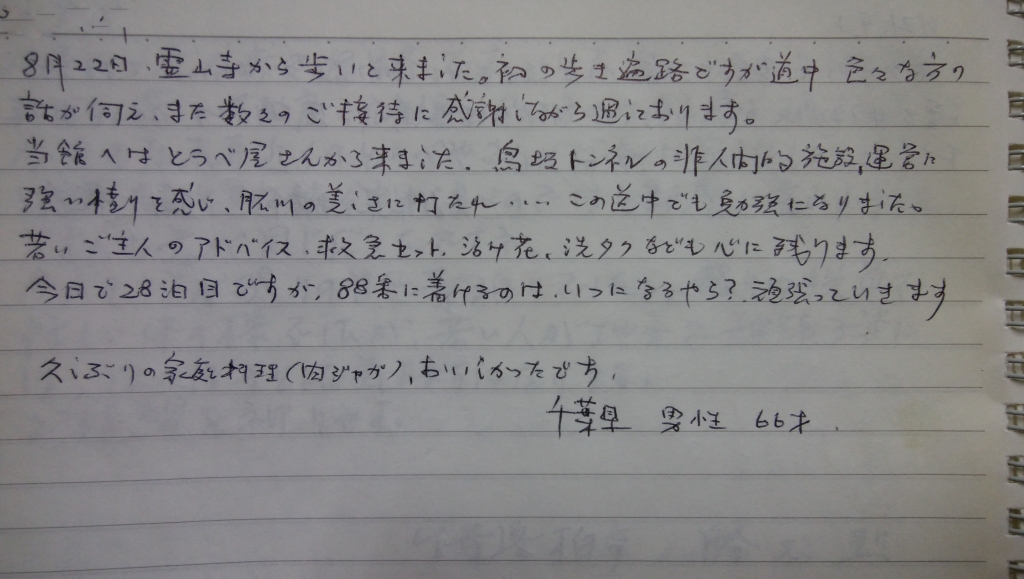 8月22日、霊山寺から歩いて来ました。初の歩き遍路ですが道中 色々な方の
話が伺え、また数々のご接待に感謝しながら過しております。
当館へはとうべ屋さんから来ました。鳥坂トンネルの非人間的施設、運営に
強い憤りを感じ、肱川の美しさに打たれ‥‥この道中でも勉強になりました。
若いご主人のアドバイス、救急セット、活け花、洗タクなども心に残ります。
今日で28泊目ですが、88番に着けるのは、いつになるやら?頑張っていきます
久しぶりの家庭料理(肉ジャガ)、おいしかったです。
千葉県 男性 66才.